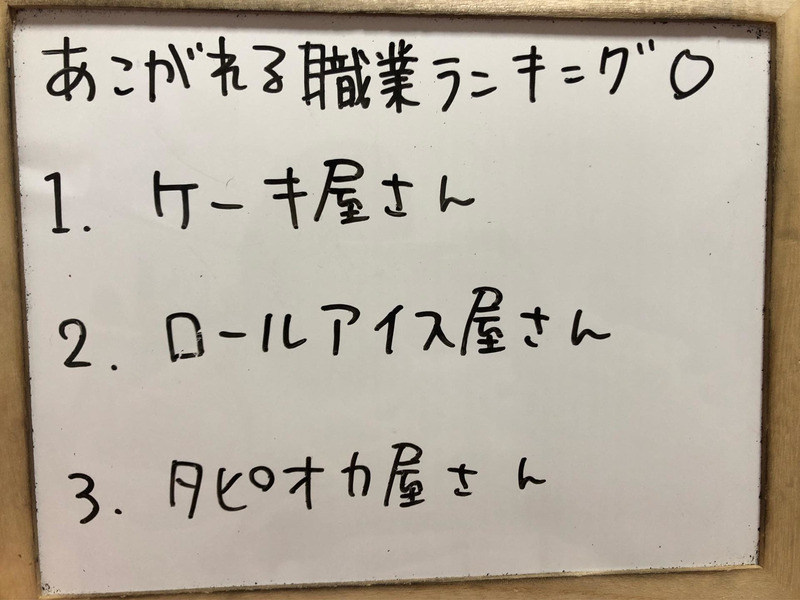 あこがれる職業ランキング〇
1. ケーキ屋さん
2. ロールアイス屋さん
3. タピオカ屋さん